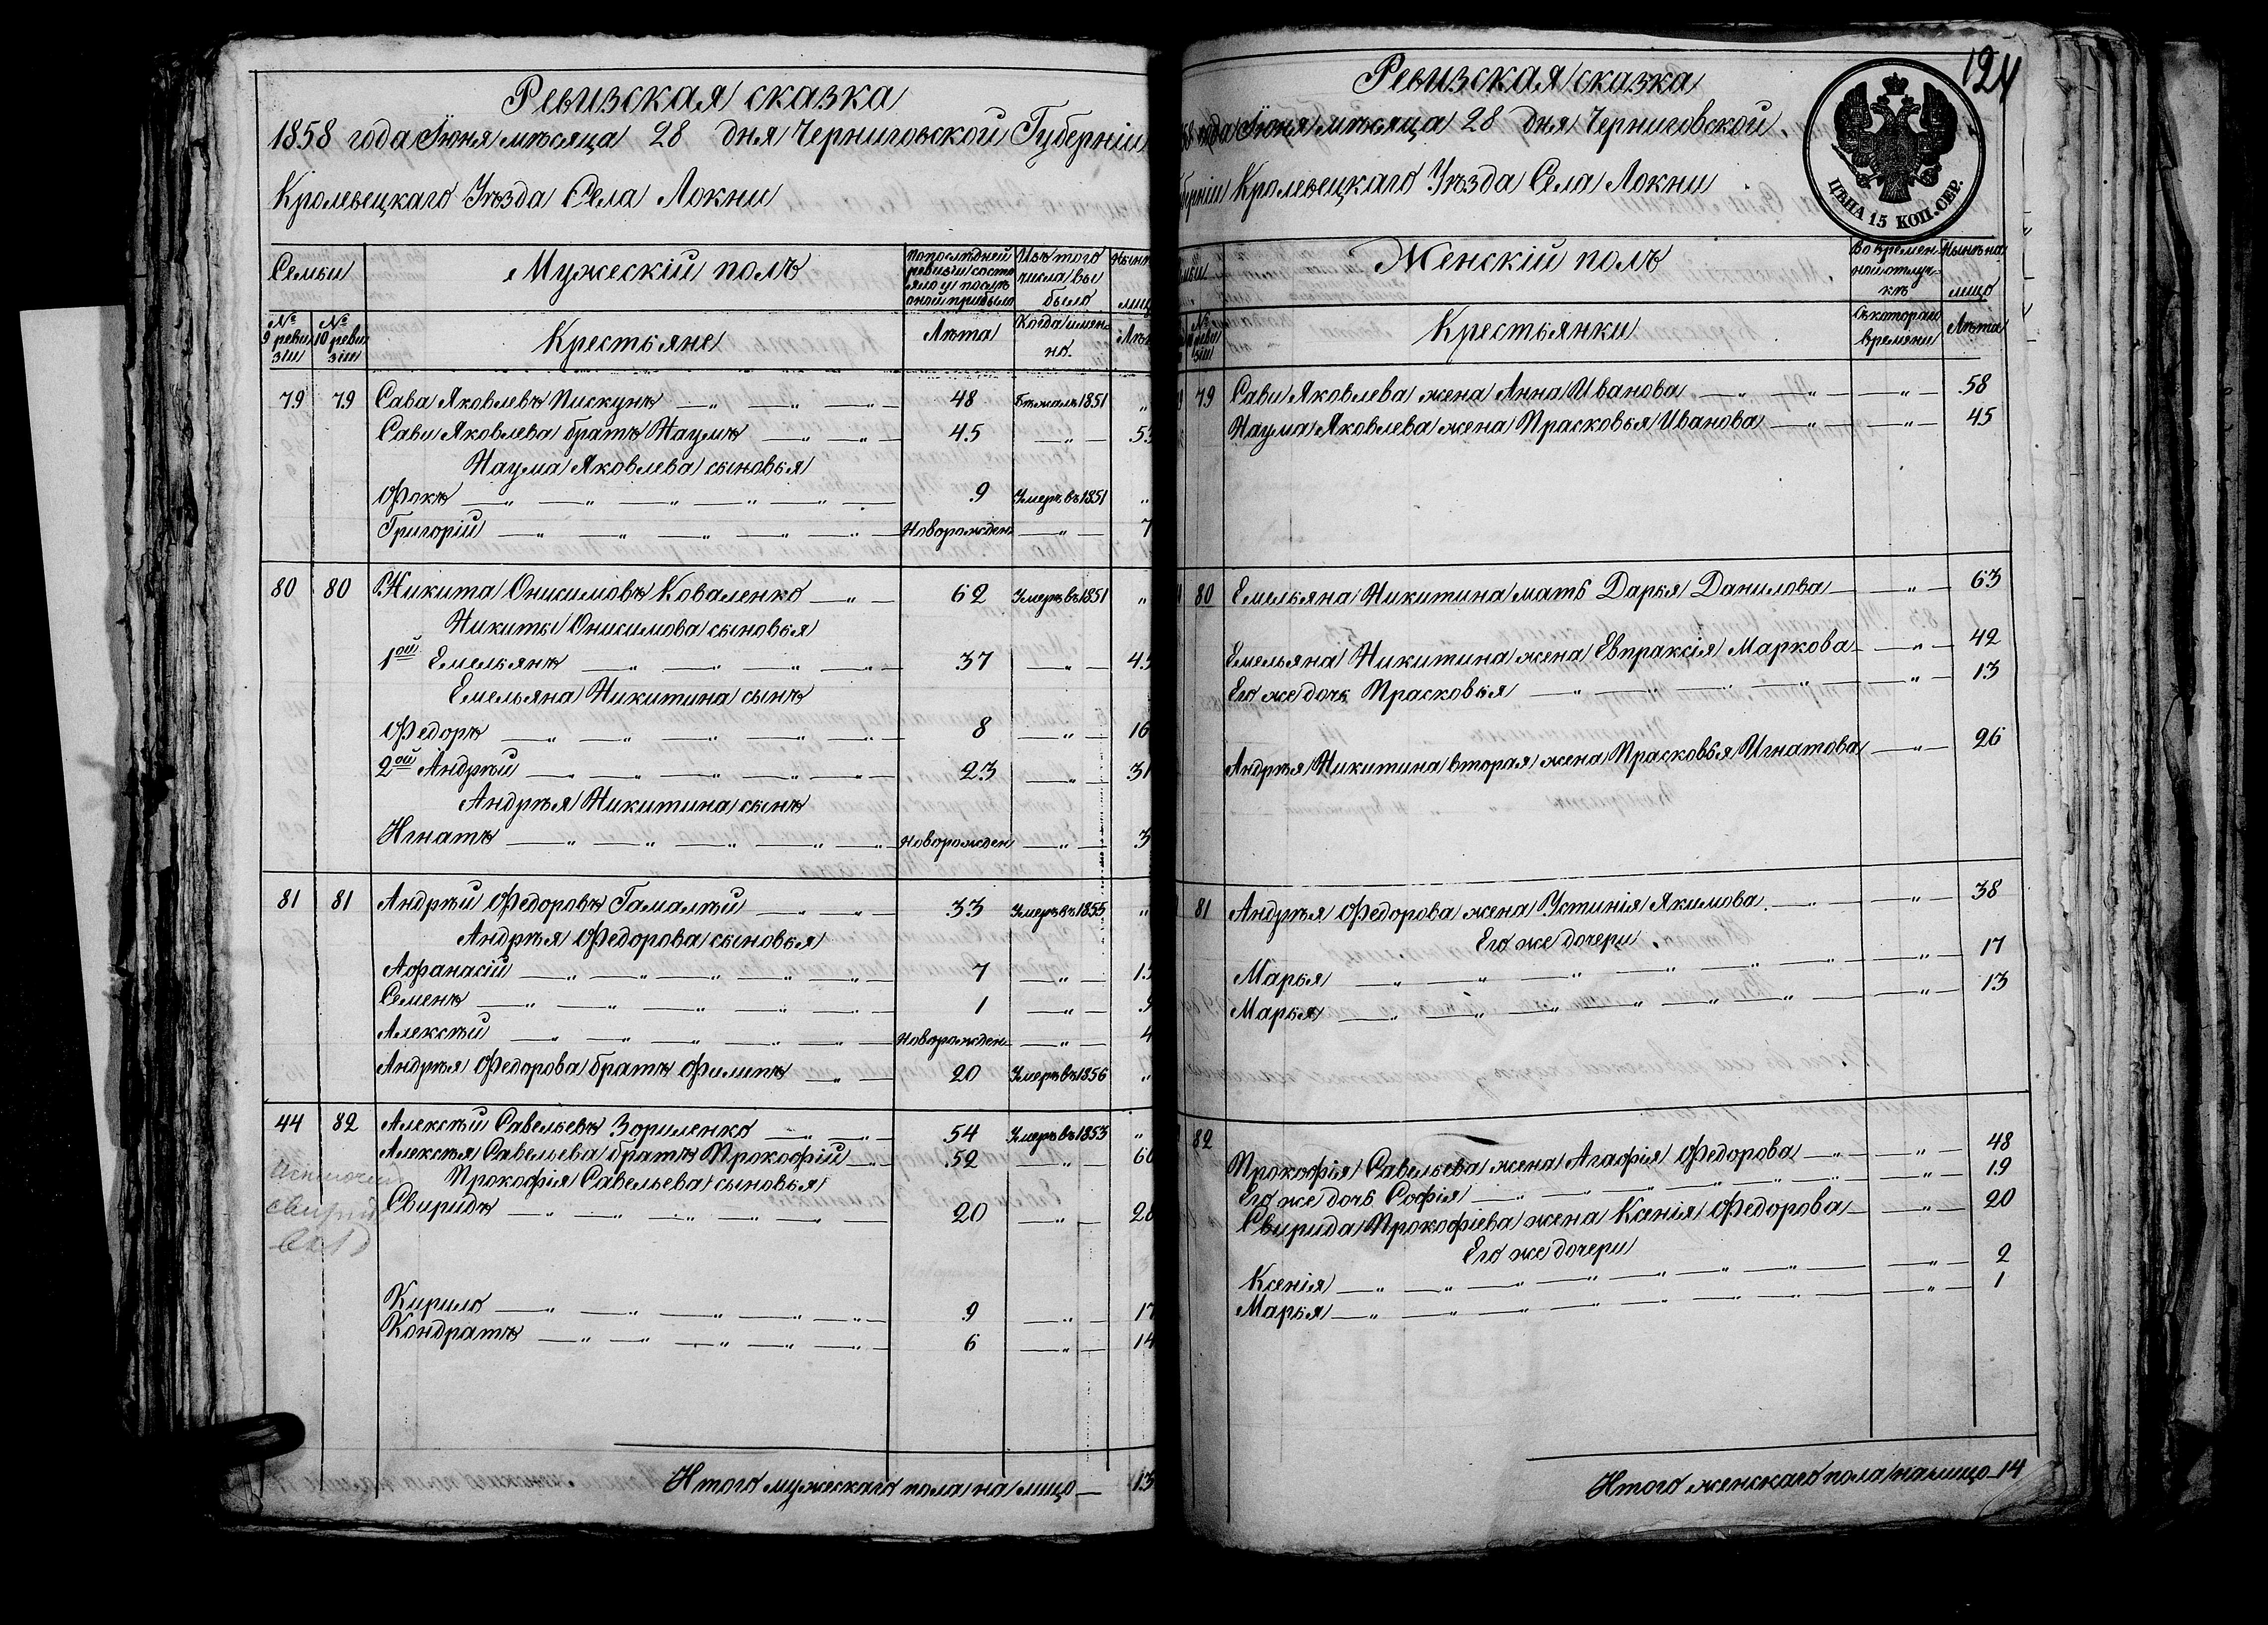 Ревизская сказка
1858 года Іюня мѣсяца 28 дня Черниговской Губерніи
Кролевецкаго Уѣзда Села Локни
Семьи
Мужескій полъ
По последней ревизіи состояло и после оной прибыло
Изъ того числа выбыло
№ 9 ревизіи
№ 10 ревизіи
Крестьяне
Лѣта
Когда имянно.
79 79 Сава Яковлевъ Пискунъ 48 Бежалъ 1851 "
Савы Яковлева братъ Наумъ 45 " 53
Наума Яковлева сыновья
Фокъ 9 Умеръ въ 1851 "
Григорій Новорожден " 7
80 80 Никита Онисимовъ Коваленко 62 Умеръ въ 1851 "
Никиты Онисимова сыновья
1ой Емельянъ 37 " 45
Емельяна Никитина сынъ
Федоръ 8 " 16
2ой Андрѣй 23 " 31
Андрѣя Никитина сынъ
Игнатъ Новорожден " 3
81 81 Андрѣй Федоровъ Гамалѣй 33 Умеръ въ 1855 "
Андрѣя Федорова сыновья
Афанасій 7 " 15
Семенъ 1 " 9
Алексѣй Новорожден " 4
Андрѣя Федорова братъ Филипъ 20 Умеръ въ 1856 "
44 82 Алексѣй Савельевъ Зориленко 54 Умеръ въ 1853 "
Алексѣя Савельева братъ Прокофій 52 " 60
Прокофія Савельева сыновья
Свиридъ 20 " 28
Кирило 9 " 17
Кондратъ 6 " 14
Итого мужескаго пола на лицо 13
124
Ревизская сказка
года Іюня мѣсяца 28 дня Черниговской
Кролевецкаго Уѣзда Села Локни
ЦѢНА 15 КОП. СЕР.
Женскій полъ
Во временной отлучкѣ
Нынѣ на лицо
Крестьянки
Съ котораго времени
Лѣта
79 Савы Яковлева жена Анна Иванова " 58
Наума Яковлева жена Прасковья Иванова " 45
80 Емельяна Никитина мать Дарья Данилова " 63
Емельяна Никитина жена Евпраксія Маркова " 42
Его же дочь Прасковья " 13
Андрѣя Никитина вторая жена Прасковья Игнатова " 26
81 Андрѣя Федорова жена Устинія Якимова " 38
Его же дочери
Марья " 17
Марья " 13
82 Прокофія Савельева жена Агафія Федорова " 48
Его же дочь Софія " 19
Свирида Прокофіева жена Ксенія Федорова " 20
Его же дочери
Ксенія " 2
Марья " 1
Итого женскаго пола на лицо 14